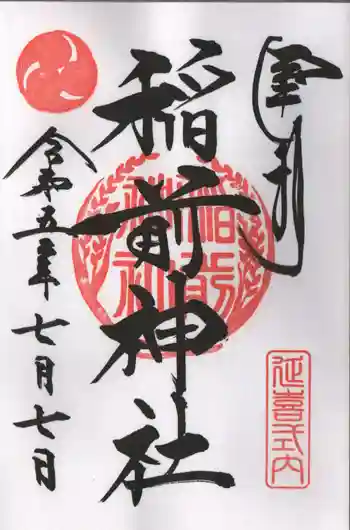 奉拝
稲前神社
令和五年七月七日
稲前神社
延喜式内